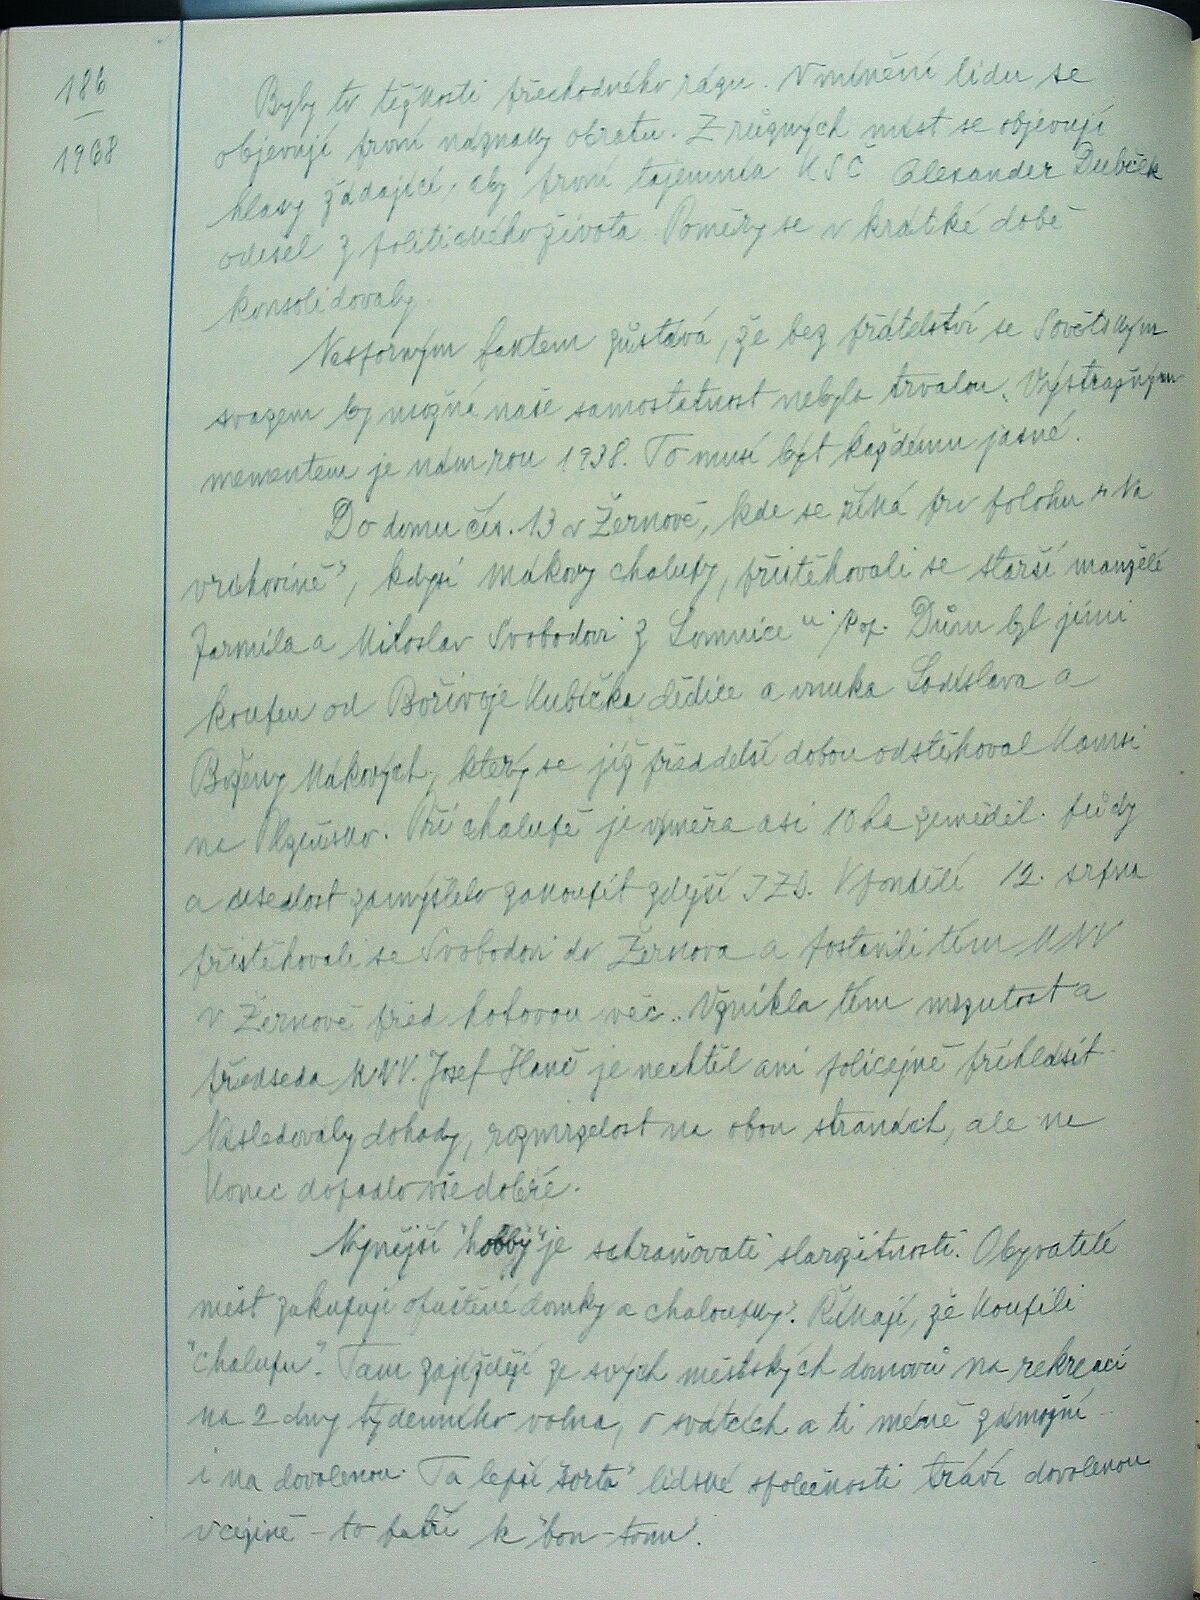 186
1968
Byly to těžkosti přechodného rázu. V mínění lidu se
objevují první náznaky obratu. Z různých míst se objevují
hlasy žádající, aby první tajemník KSČ Alexander Dubček
odešel z politického života. Poměry se v krátké době
konsolidovaly.
Nesporným faktem zůstává, že bez přátelství se Sovětským
svazem by možná naše samostatnost nebyla trvalou. Výstražným
mementem je nám rok 1938. To musí být každému jasné.
Do domu čís. 13 v Žernově, kde se říká pro polohu "Na
vrchovině", kdysi Mákovy chalupy, přistěhovali se starší manželé
Jarmila a Miloslav Svobodovi z Lomnice n/Pop. Dům byl jimi
koupen od Bořivoje Kubíčka dědice a vnuka Ladislava a
Boženy Mákových, který se již před delší dobou odstěhoval kamsi
na Plzeňsko. Při chalupě je výměra asi 10 ha zeměděl. půdy
a usedlost zamýšlelo zakoupit zdejší JZD. V pondělí 12. srpna
přistěhovali se Svobodovi do Žernova a postavili tím MNV
v Žernově před hotovou věc. Vznikla tím mrzutost a
předseda MNV. Josef Hanč je nechtěl ani policejně přihlásit.
Následovaly dohady, rozmrzelost na obou stranách, ale na
konec dopadlo vše dobře.
Nynější "hobby" je schraňovati starožitnosti. Obyvatelé
měst zakupují opuštěné domky a chaloupky. Říkají, že koupili
"chalupu". Tam zajíždějí ze svých městských domovů na rekreaci
na 2 dny týdenního volna, o svátcích a ti méně zámožní
i na dovolenou. Ta lepší "sorta" lidské společnosti tráví dovolenou
v cizině - to patří k "bon-tonu".